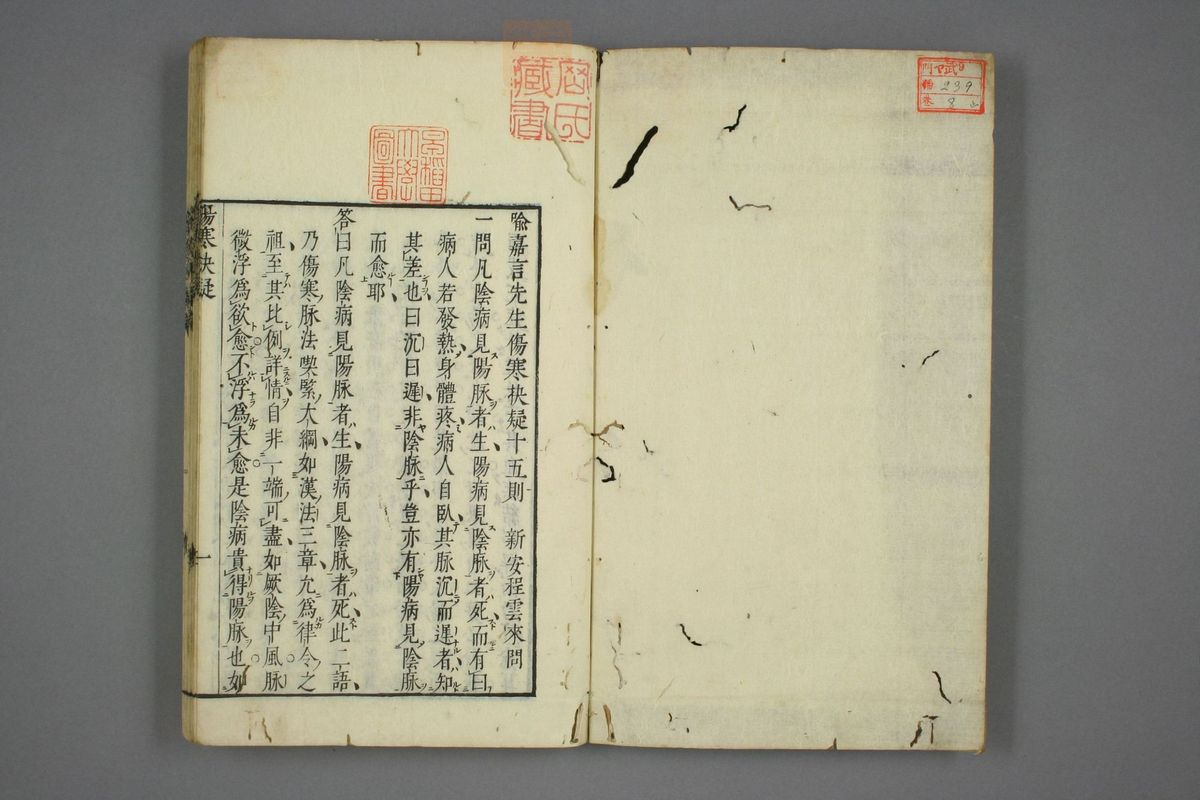 喩嘉言先生傷寒抉疑十五則　新安程雲來問
一問凡陰病見陽脉者生陽病見陰脉者死而有曰
病人若發熱身體疼病人自臥其脈沉而遲者知
其差也曰沉曰遲非陰脉乎豈亦有陽病見陰脉
而愈耶
答曰凡陰病見陽脉者生陽病見陰脉者死此二語
乃傷寒脉法喫緊大綱如漢法三章允爲律令之
祖至其比例詳情自非一端可盡如厥陰中風脉
微浮爲欲愈不浮爲未愈是陰病貴得陽脉也如
傷寒抉疑
一
早稲田大學圖書
藏書
239